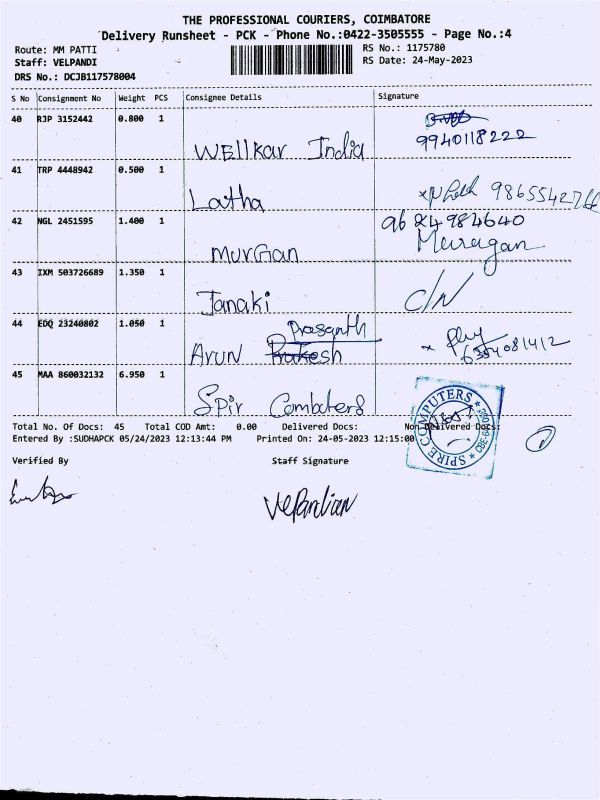 THE PROFESSIONAL COURIERS, COIMBATORE
Delivery Runsheet - PCK - Phone No.:0422-3505555 - Page No.:4
Route: MM PATTI
RS No.: 1175780
Staff: VELPANDI
RS Date: 24-May-2023
DRS No.: DCJB117578004
S No Consignment No Weight PCS Consignee Details Signature
40 RJP 3152442 0.800 1
9940118222
Wellkar India
41 TRP 4448942 0.500 1
Latha
42 NGL 2451595 1.400 1 9624984640
MurGan Muragan
43 IXM 503726689 1.350 1
Janaki C/N
44 EDQ 23240802 1.050 1 Prasanth
Arun 6384081412
45 MAA 860032132 6.950 1
Spir Combaters
SPIRE COMPUTERS
Total No. Of Docs: 45 Total COD Amt: 0.00 Delivered Docs: Non Delivered Docs:
Entered By :SUDHAPCK 05/24/2023 12:13:44 PM Printed On: 24-05-2023 12:15:00
Verified By Staff Signature
VelPandian